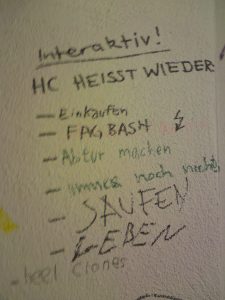 Interaktiv!
HC HEISST WIEDER:
— Einkaufen
— FPG BASH
— Abitur machen
— immer noch nicht
— SAUFEN
— LEBEN
- heel Clones